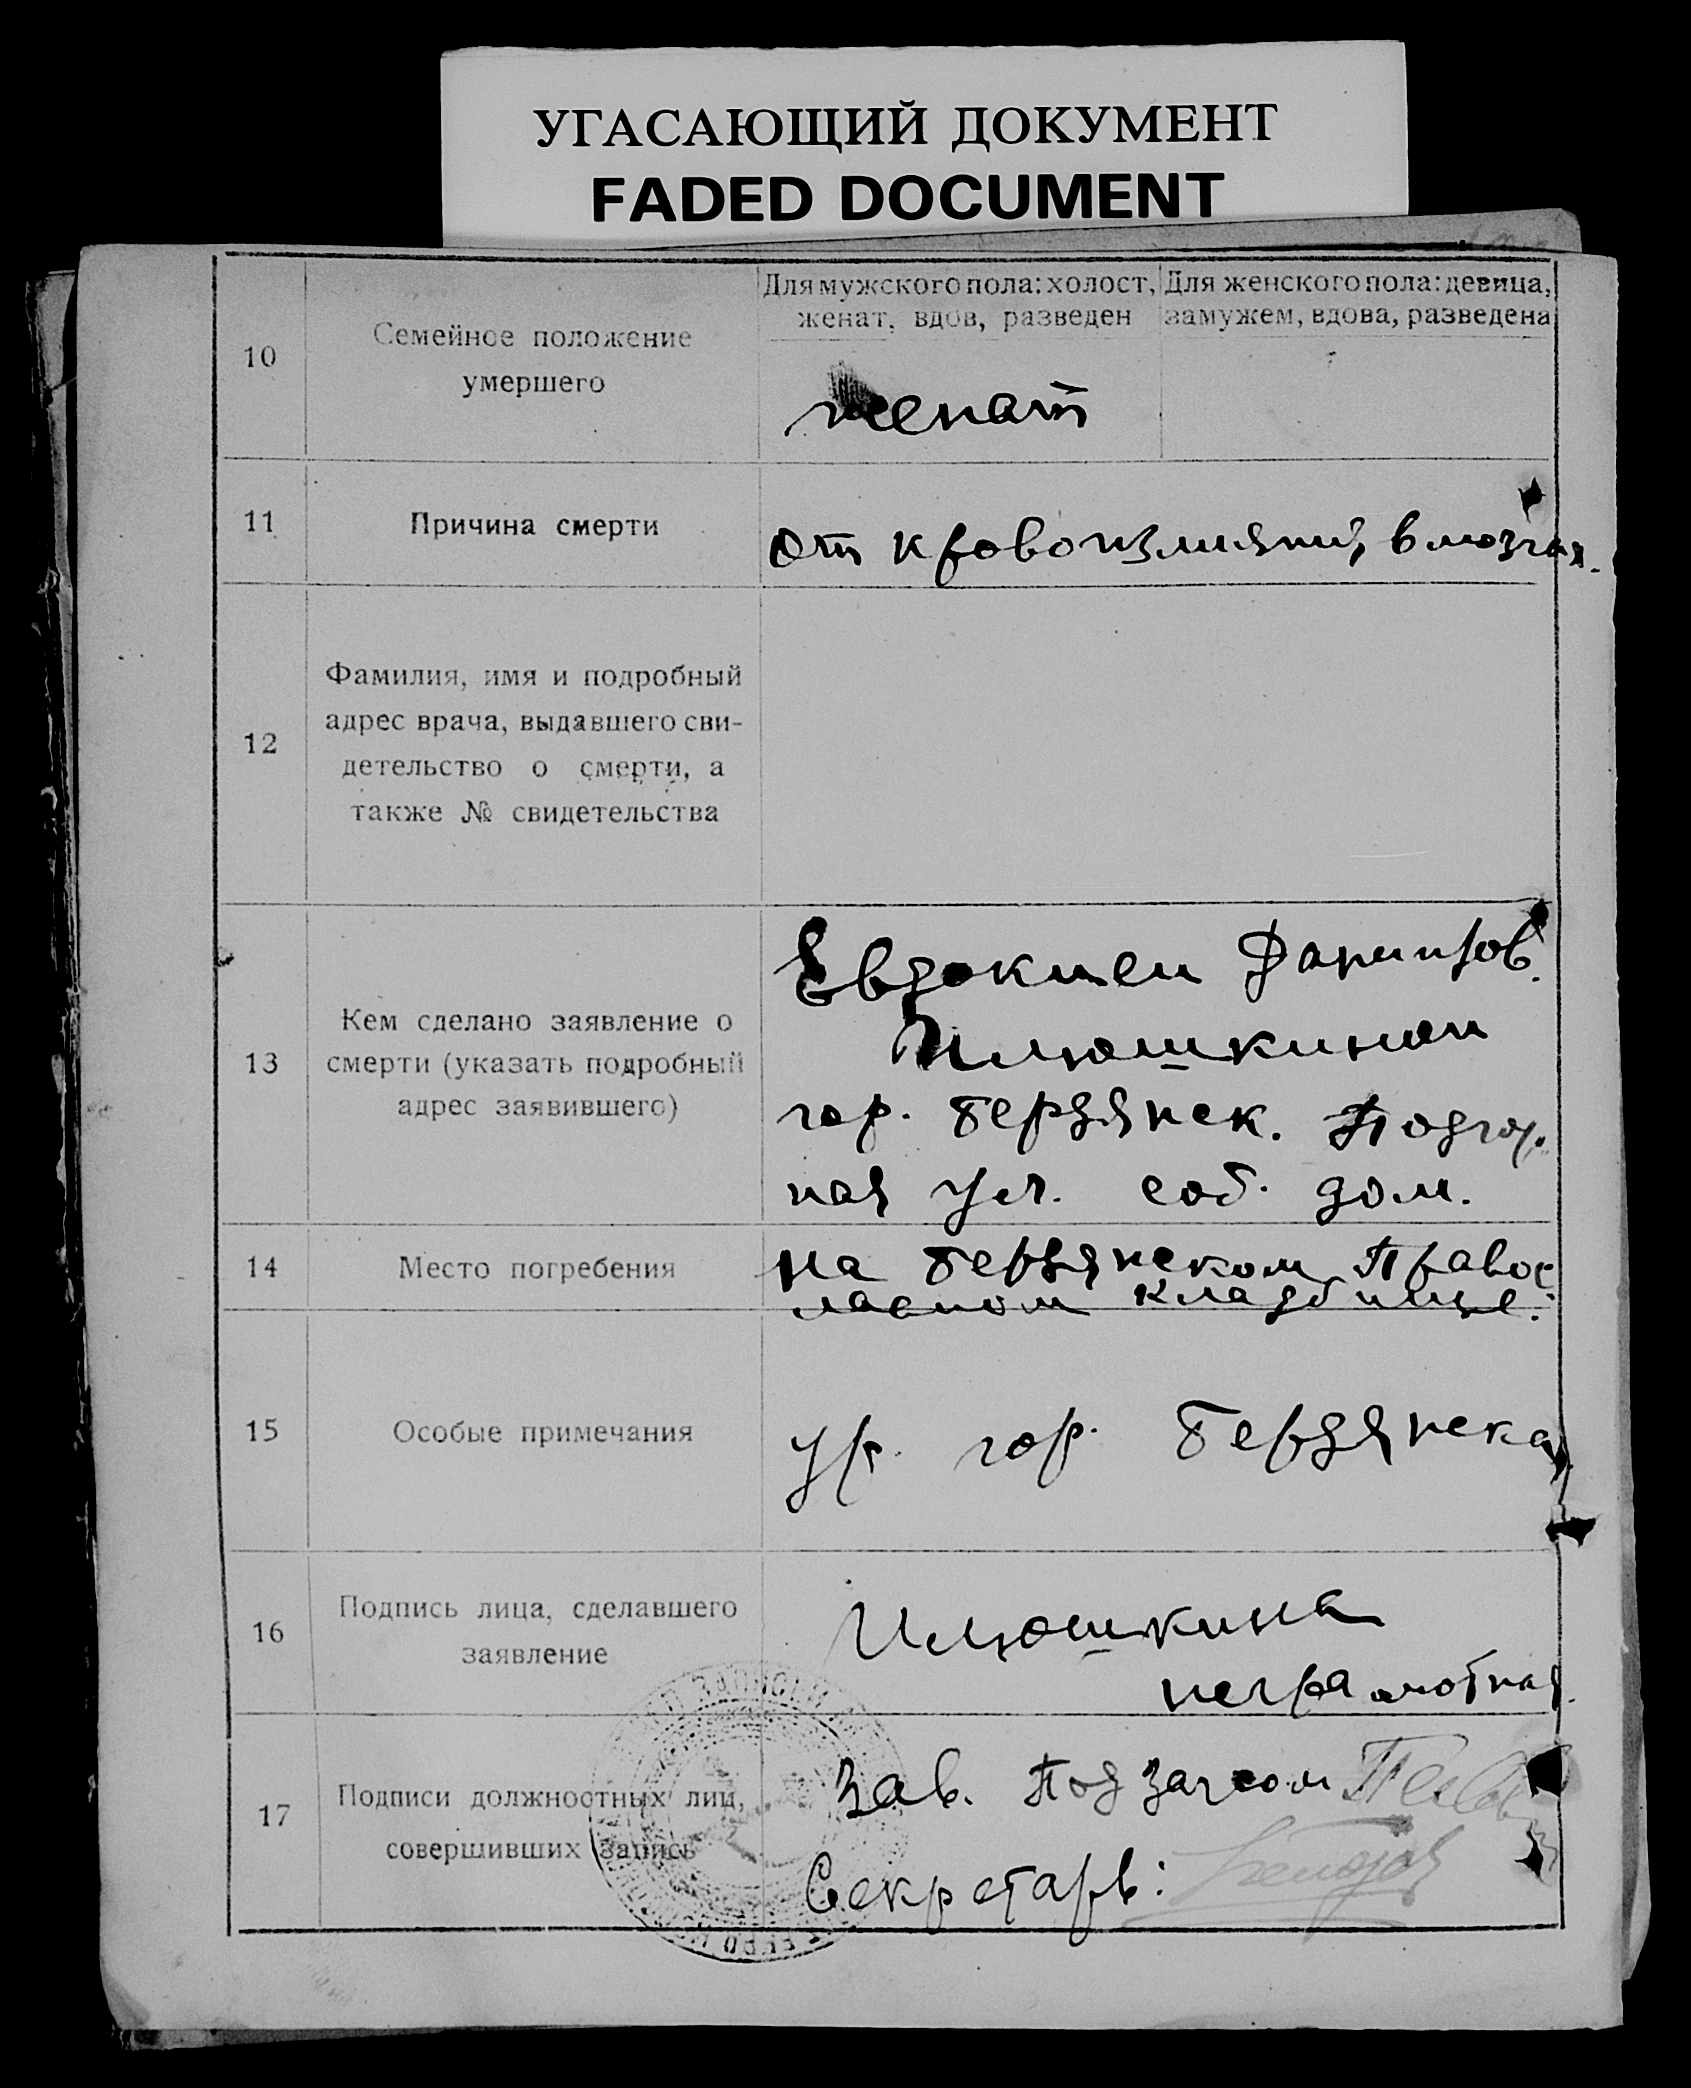 УГАСАЮЩИЙ ДОКУМЕНТ
FADED DOCUMENT
10
Семейное положение
умершего
Для мужского пола: холост,
женат, вдов, разведен
Для женского пола: девица,
замужем, вдова, разведена
женат
11
Причина смерти
от кровоизлияния в мозгах.
12
Фамилия, имя и подробный
адрес врача, выдавшего сви-
детельство о смерти, а
также № свидетельства
13
Кем сделано заявление о
смерти (указать подробный
адрес заявившего)
Евдокией
Илюшкиной
гор. Бердянск. Подгор-
ная ул. соб. дом.
14
Место погребения
на Бердянском Правос
лавном кладбище.
15
Особые примечания
ур. гор. Бердянска
16
Подпись лица, сделавшего
заявление
Илюшкина
неграмотная.
17
Подписи должностных лиц,
совершивших запись
Зав. Подзагсом
Секретарь: